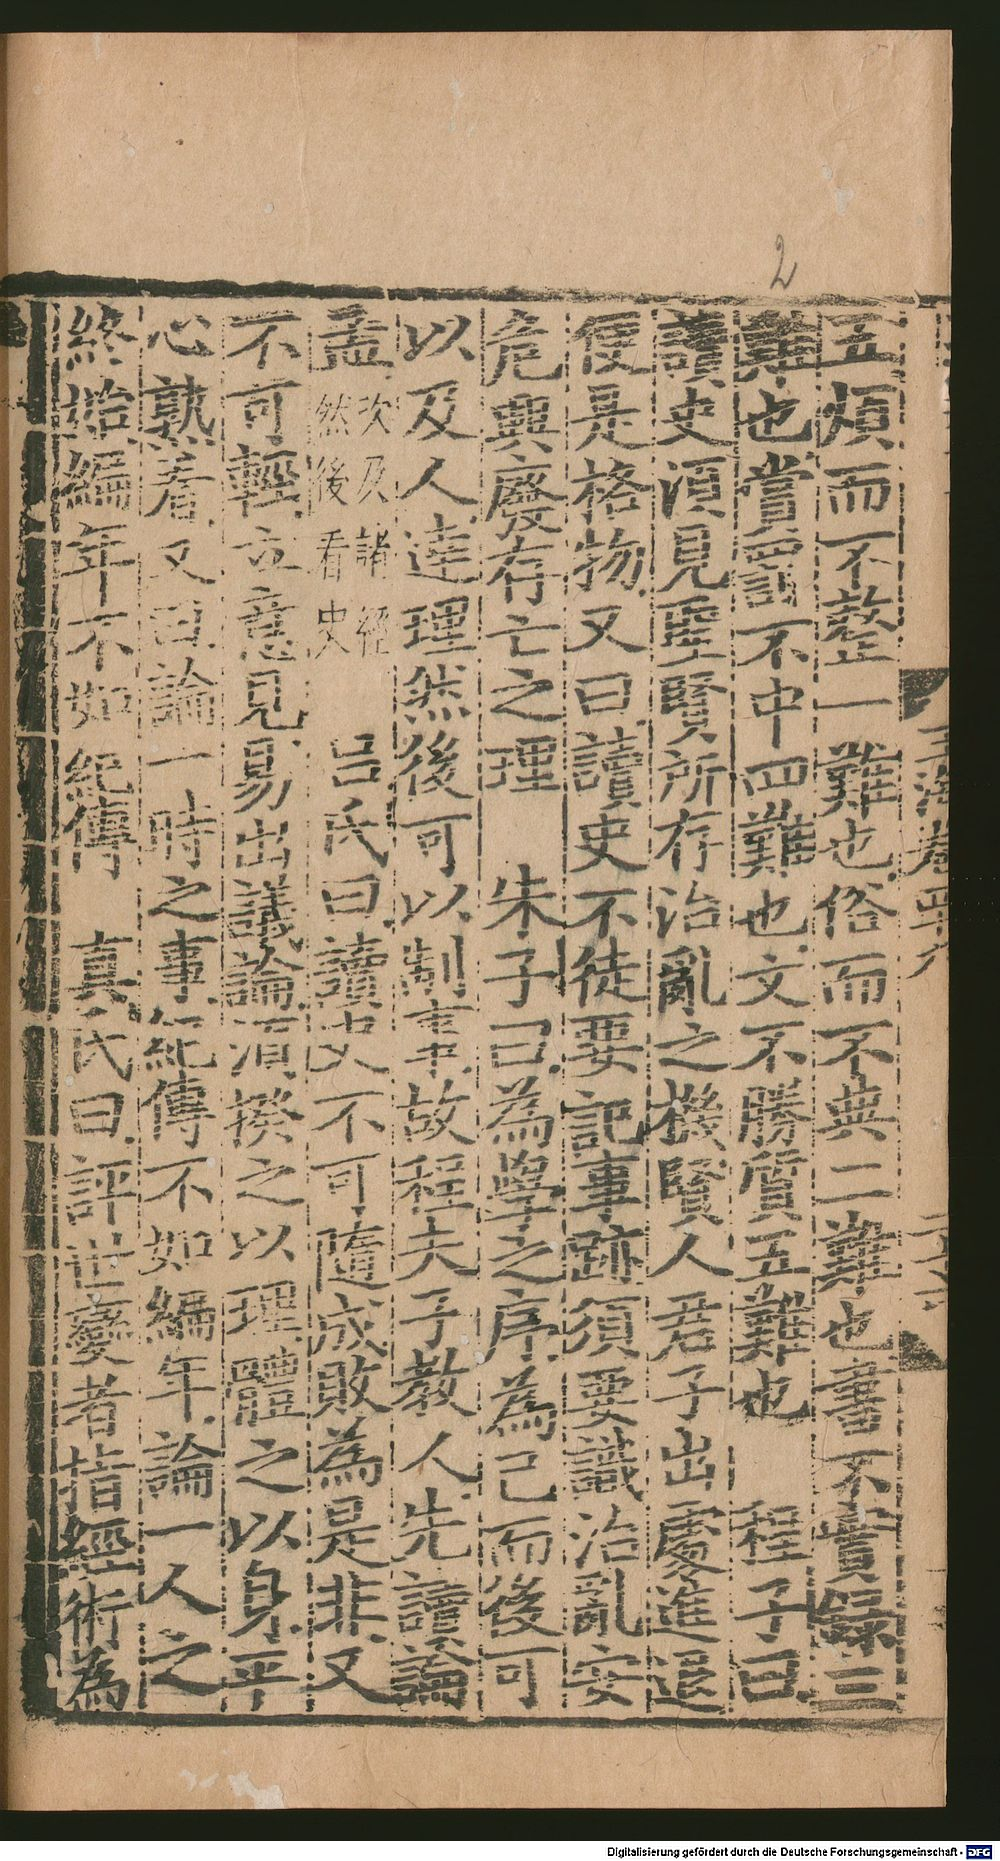 2
五煩而不整一難也俗而不典二難也書不實錄三
難也賞罰不中四難也文不勝質五難也　程子曰
讀史須見聖賢所存治亂之機賢人君子出處進退
便是格物又曰讀史不徒要記事跡須要識治亂安
危興廢存亡之理　朱子曰為學之序為己而後可
以及人達理然後可以制事故程夫子教人先讀論
孟次及諸經然後看史　呂氏曰讀史不可隨成敗為是非又
不可輕立意見易出議論須揆之以理體之以身平
心熟看又曰論一時之事紀傳不如編年論一人之
終始編年不如紀傳　真氏曰評世變者指經術為
Digitalisierung gefördert durch die Deutsche Forschungsgemeinschaft - DFG